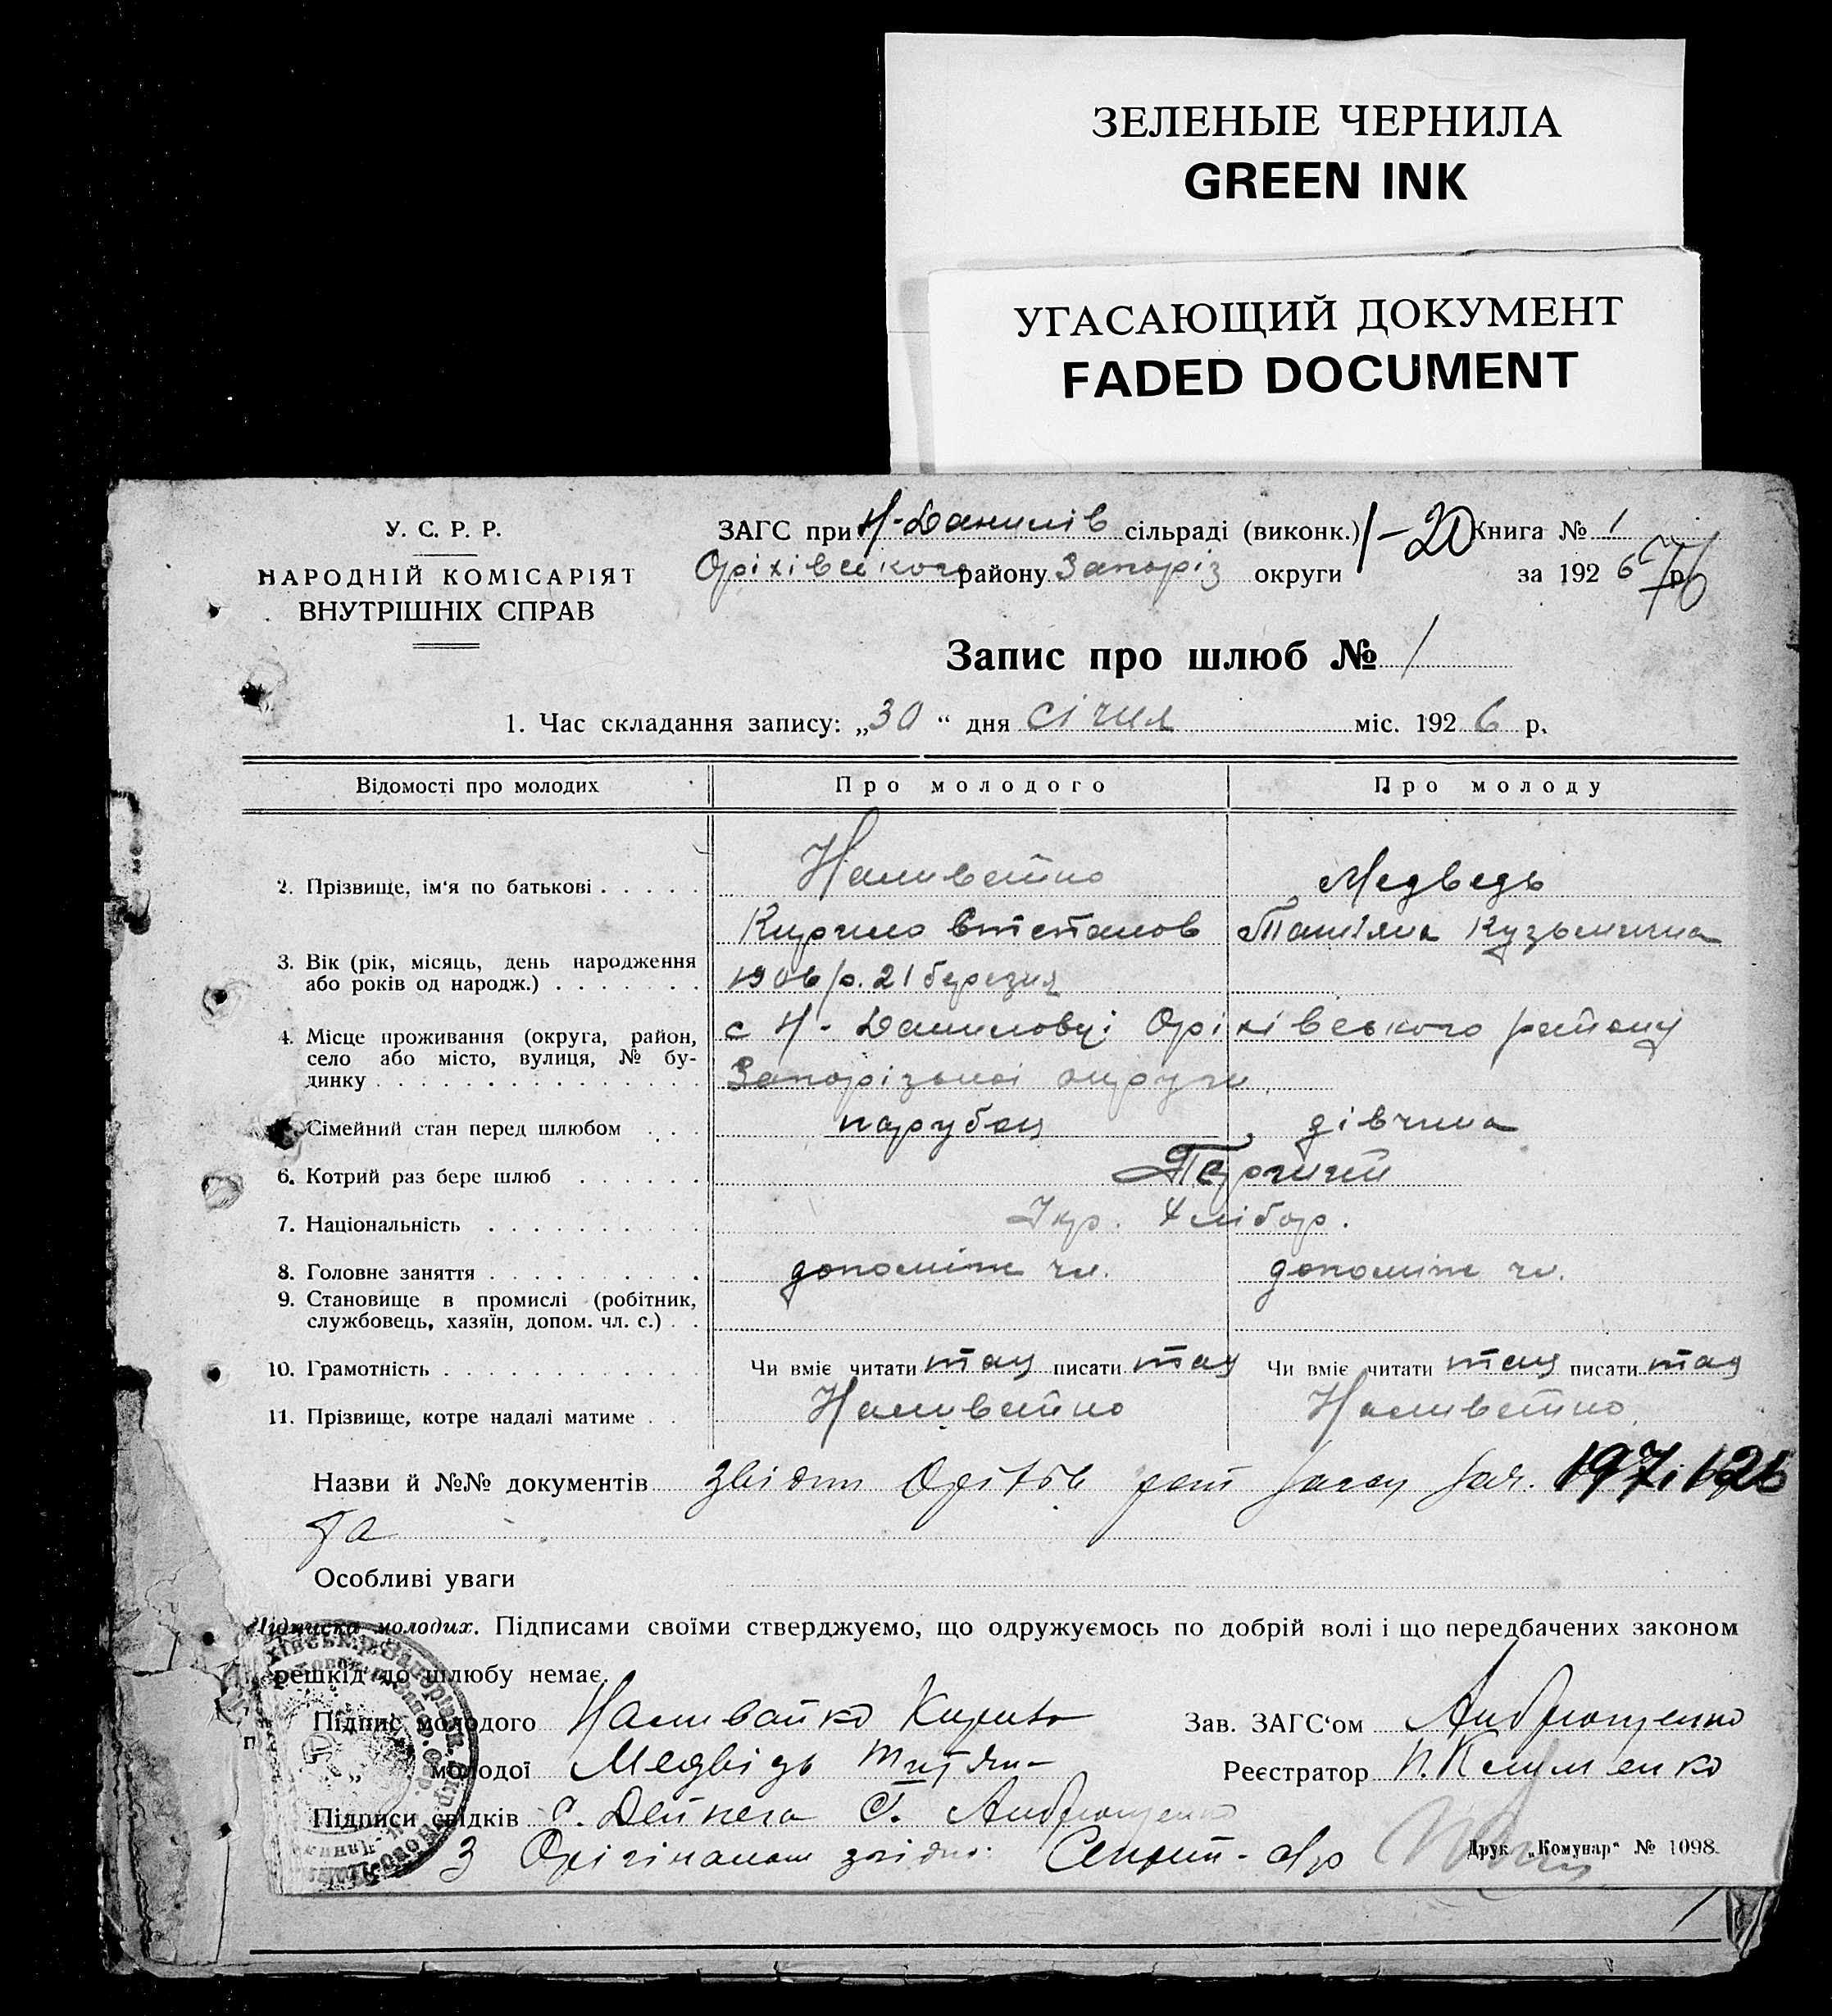 ЗЕЛЕНЫЕ ЧЕРНИЛА
GREEN INK
УГАСАЮЩИЙ ДОКУМЕНТ
FADED DOCUMENT
У. С. Р. Р.
НАРОДНІЙ КОМІСАРІЯТ
ВНУТРІШНІХ СПРАВ
ЗАГС при Н-Данилів сільраді (виконк.) 1-20 Книга № 1
Оріхівського району Запоріз округи за 192 6 р.
Запис про шлюб № 1
1. Час складання запису: „30“ дня січня міс. 192 6 р.
Відомості про молодих Про молодого Про молоду
2. Прізвище, ім'я по батькові Наливайко Медведь
Кирило Татіяна Кузьминична
3. Вік (рік, місяць, день народження
або років од народж.) 1906 р. 21 березня
4. Місце проживання (округа, район, с Н-Даниловці Оріхівського району
село або місто, вулиця, № бу-
динку Запорізької округи
Сімейний стан перед шлюбом парубок дівчина
6. Котрий раз бере шлюб Перший
7. Національність Укр. Хлібор.
8. Головне заняття допоміж чл. допоміж чл.
9. Становище в промислі (робітник,
службовець, хазяїн, допом. чл. с.)
10. Грамотність Чи вміє читати так писати так Чи вміє читати так писати так
11. Прізвище, котре надалі матиме Наливайко Наливайко
Назви й №№ документів
Особливі уваги
Підписка молодих. Підписами своїми стверджуємо, що одружуємось по добрій волі і що передбачених законом
решкід до шлюбу немає.
Підпис молодого Наливайко Кирило Зав. ЗАГС'ом Андрющенко
„ молодої Медвідь Реєстратор П. Клименко
Підписи свідків Дейнега Андрющенко
З Орігіналом згідно: Секрет-ар
Друк. „Комунар“ № 1098.